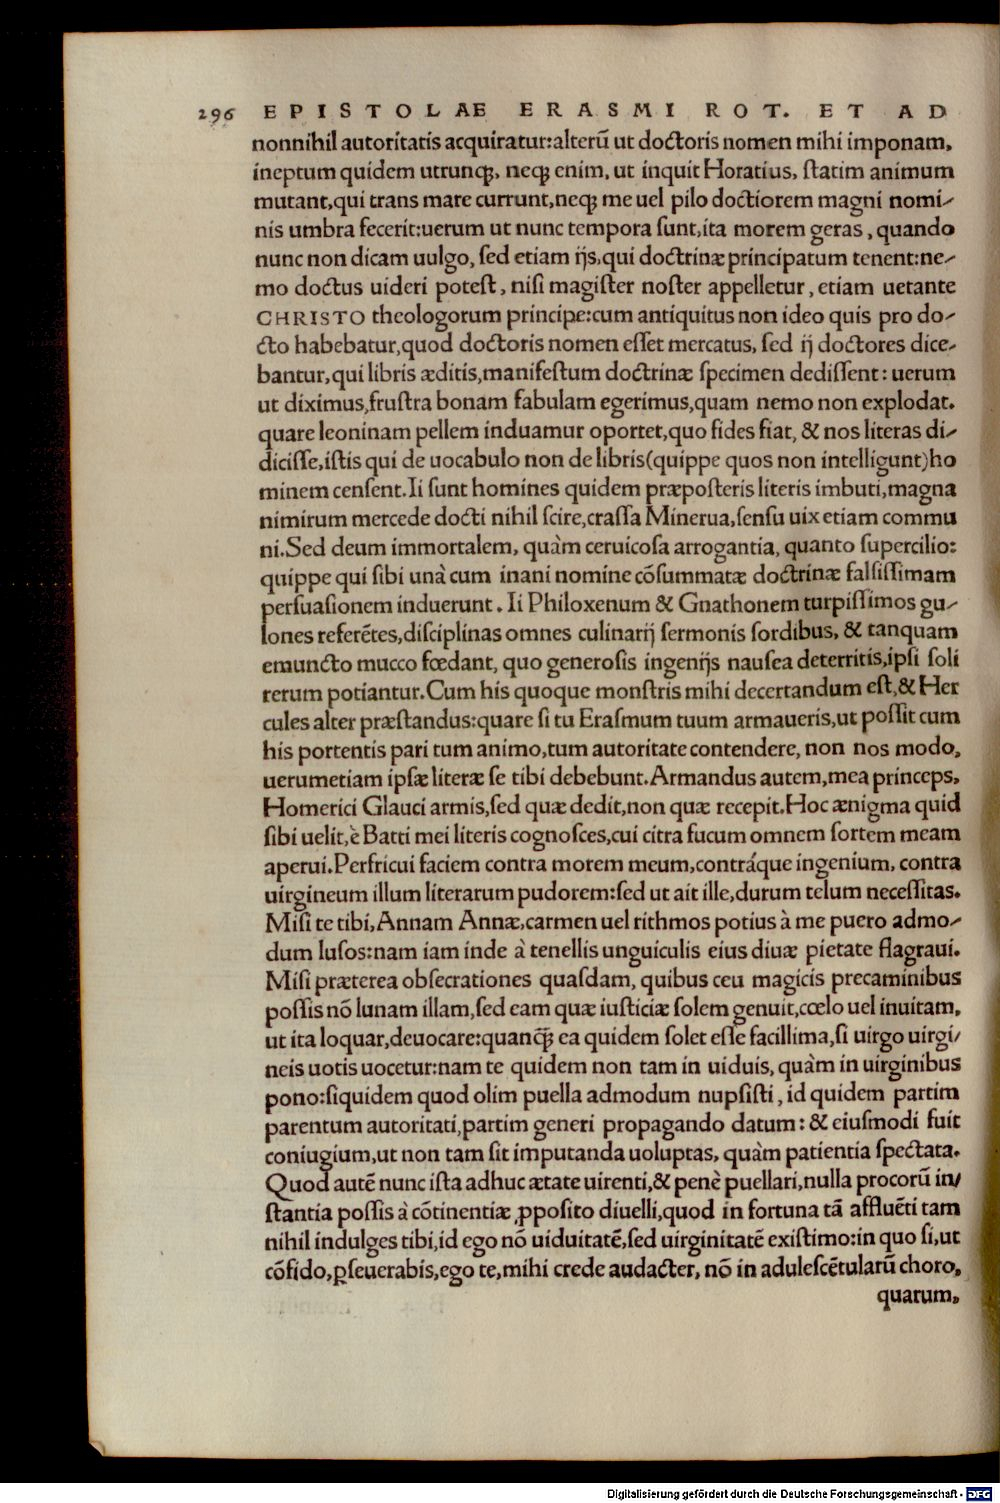 296 EPISTOLAE ERASMI ROT. ET AD
nonnihil autoritatis acquiratur:alterũ ut doctoris nomen mihi imponam,
ineptum quidem utrunqꝫ, neqꝫ enim, ut inquit Horatius, ſtatim animum
mutant,qui trans mare currunt,neqꝫ me uel pilo doctiorem magni nomi-
nis umbra fecerit:uerum ut nunc tempora ſunt,ita morem geras, quando
nunc non dicam uulgo, ſed etiam ijs,qui doctrinæ principatum tenent:ne-
mo doctus uideri poteſt, niſi magiſter noſter appelletur, etiam uetante
CHRISTO theologorum principe:cum antiquitus non ideo quis pro do-
cto habebatur,quod doctoris nomen eſſet mercatus, ſed ij doctores dice-
bantur,qui libris æditis,manifeſtum doctrinæ ſpecimen dediſſent: uerum
ut diximus,fruſtra bonam fabulam egerimus,quam nemo non explodat.
quare leoninam pellem induamur oportet,quo fides fiat, & nos literas di-
diciſſe,iſtis qui de uocabulo non de libris(quippe quos non intelligunt)ho
minem cenſent.Ii ſunt homines quidem præpoſteris literis imbuti,magna
nimirum mercede docti nihil ſcire,craſſa Minerua,ſenſu uix etiam commu
ni.Sed deum immortalem, quàm ceruicoſa arrogantia, quanto ſupercilio:
quippe qui ſibi unà cum inani nomine cõſummatæ doctrinæ falſiſſimam
perſuaſionem induerunt. Ii Philoxenum & Gnathonem turpiſſimos gu-
lones referẽtes,diſciplinas omnes culinarij ſermonis ſordibus, & tanquam
emuncto mucco fœdant, quo generoſis ingenijs nauſea deterritis,ipſi ſoli
rerum potiantur.Cum his quoque monſtris mihi decertandum eſt,& Her
cules alter præſtandus:quare ſi tu Eraſmum tuum armaueris,ut poſſit cum
his portentis pari tum animo,tum autoritate contendere, non nos modo,
uerumetiam ipſæ literæ ſe tibi debebunt.Armandus autem,mea princeps,
Homerici Glauci armis,ſed quæ dedit,non quæ recepit.Hoc ænigma quid
ſibi uelit,è Batti mei literis cognoſces,cui citra fucum omnem ſortem meam
aperui.Perfricui faciem contra morem meum,contráque ingenium, contra
uirgineum illum literarum pudorem:ſed ut ait ille,durum telum neceſſitas.
Miſi te tibi,Annam Annæ,carmen uel rithmos potius à me puero admo-
dum luſos:nam iam inde à tenellis unguiculis eius diuæ pietate flagraui.
Miſi præterea obſecrationes quaſdam, quibus ceu magicis precaminibus
poſſis nõ lunam illam,ſed eam quæ iuſticiæ ſolem genuit,cœlo uel inuitam,
ut ita loquar,deuocare:quanqꝫ̃ ea quidem ſolet eſſe facillima,ſi uirgo uirgi-
neis uotis uocetur:nam te quidem non tam in uiduis, quàm in uirginibus
pono:ſiquidem quod olim puella admodum nupſiſti, id quidem partim
parentum autoritati,partim generi propagando datum: & eiuſmodi fuit
coniugium,ut non tam ſit imputanda uoluptas, quàm patientia ſpectata.
Quod autẽ nunc iſta adhuc ætate uirenti,& penè puellari,nulla procorũ in-
ſtantia poſſis à cõtinentiæ ꝓpoſito diuelli,quod in fortuna tã affluẽti tam
nihil indulges tibi,id ego nõ uiduitatẽ,ſed uirginitatẽ exiſtimo:in quo ſi,ut
cõfido,ꝑſeuerabis,ego te,mihi crede audacter, nõ in aduleſcẽtularũ choro,
quarum,
Digitalisierung gefördert durch die Deutsche Forschungsgemeinschaft - DFG